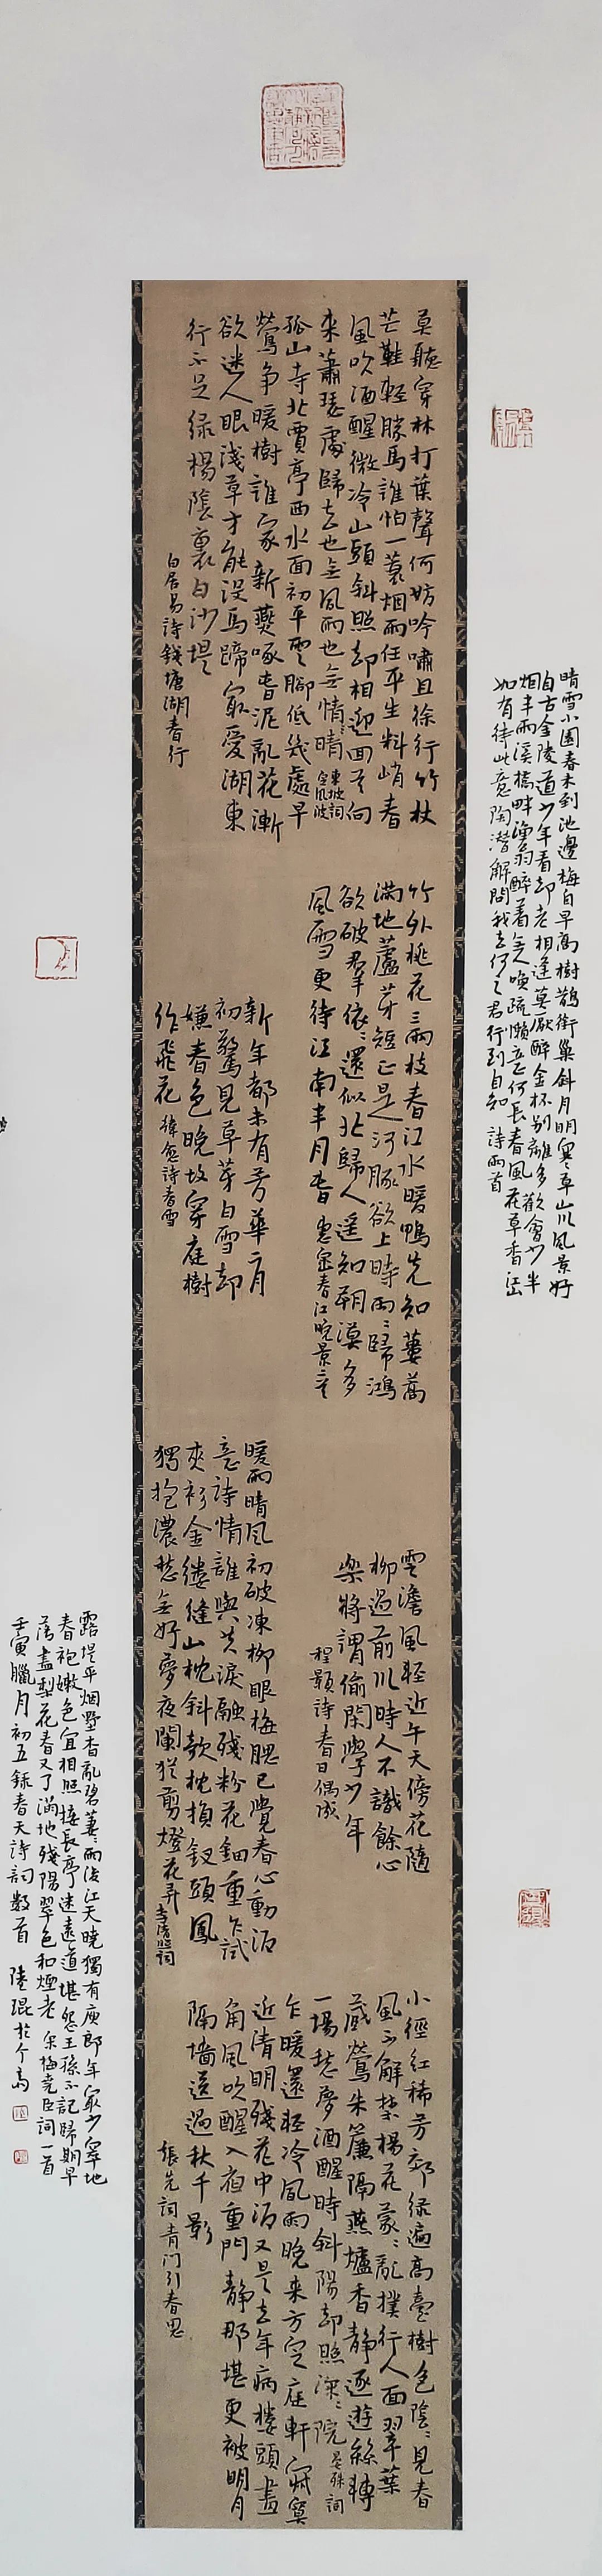 晴雪小園春未到池邊梅自早高樹鵲銜巢斜月明寒草山川風景好
自古金陵道少年看却老相逢莫厭醉金杯別離多歡會少半
烟半雨溪橋畔漁翁醉着無人喚疏懶意何長春風花草香江山
如有待此意陶潛解問我去何之君行到自知 詩兩首
莫聽穿林打葉聲何妨吟嘯且徐行竹杖
芒鞋輕勝馬誰怕一蓑烟雨任平生料峭春
風吹酒醒微冷山頭斜照却相迎回首向
來蕭瑟處歸去也無風雨也無情晴 東坡詞定風波
孤山寺北賈亭西水面初平雲腳低幾處早
鶯爭暖樹誰家新燕啄春泥亂花漸
欲迷人眼淺草才能没馬蹄最愛湖東
行不足綠楊陰裏白沙堤
白居易詩錢塘湖春行
竹外桃花三兩枝春江水暖鴨先知蔞蒿
滿地蘆芽短正是河豚欲上時兩〻歸鴻
欲破羣依〻還似北歸人遥知朔漠多
風雪更待江南半月春 惠崇春江晚景二首
新年都未有芳華二月
初驚見草芽白雪却
嫌春色晚故穿庭樹
作飛花 韓愈詩春雪
雲澹風輕近午天傍花隨
柳過前川時人不識餘心
樂將謂偷閑學少年
程顥詩春日偶成
暖雨晴風初破凍柳眼梅腮已覺春心動酒
意詩情誰與共淚融殘粉花鈿重乍試
夾衫金縷縫山枕斜欹枕損釵頭鳳
獨抱濃愁無好夢夜闌猶剪燈花弄 李清照詞
小徑紅稀芳郊綠遍高臺樹色陰〻見春
風不解禁楊花蒙〻亂撲行人面翠葉
藏鶯朱簾隔燕爐香靜逐遊絲轉
一場愁夢酒醒時斜陽却照深〻院 晏殊詞
乍暖還輕冷風雨晚來方定庭軒寂寞
近清明殘花中酒又是去年病樓頭畫
角風吹醒入夜重門靜那堪更被明月
隔墻送過秋千影
張先詞青门引春思
露堤平烟墅杳亂碧萋〻雨後江天曉獨有庾郎年最少窣地
春袍嫩色宜相照接長亭迷遠道堪怨王孫不記歸期早
落盡梨花春又了滿地殘陽翠色和煙老 宋梅堯臣詞一首
壬寅臘月初五録春天詩詞數首 陸琨於个斋